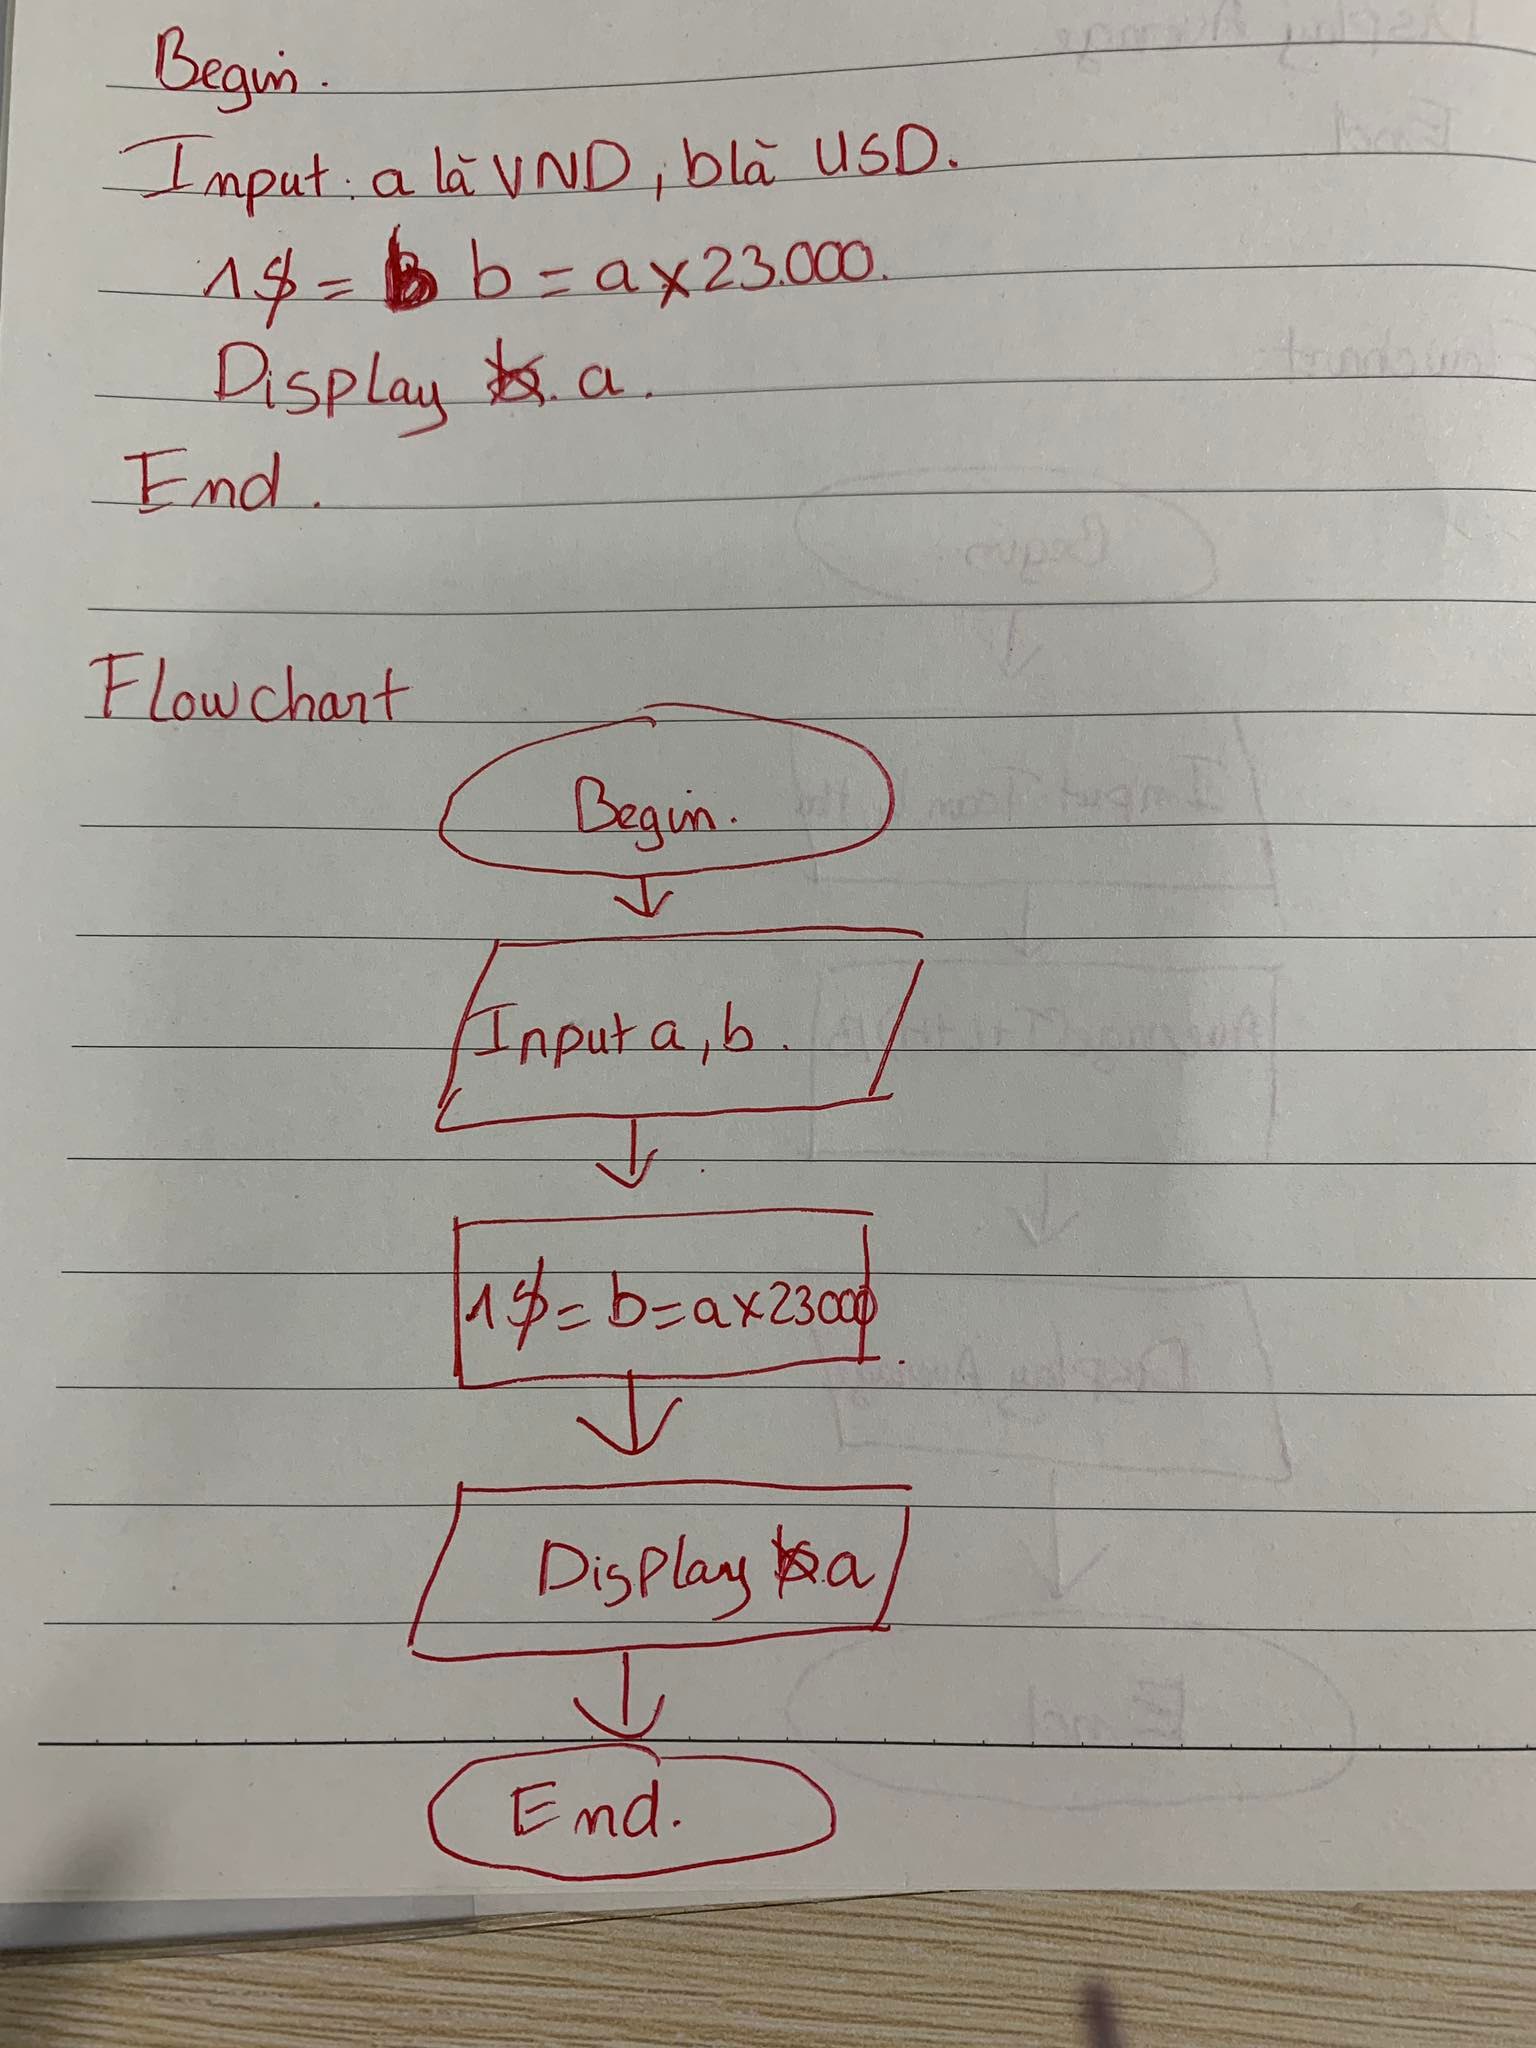 Begin.
Input: a là VND, b là USD.
1$ = b = a x 23.000.
Display a.
End.
Flowchart
Begin.
Input a, b.
1$ = b = a x 23000
Display a
End.